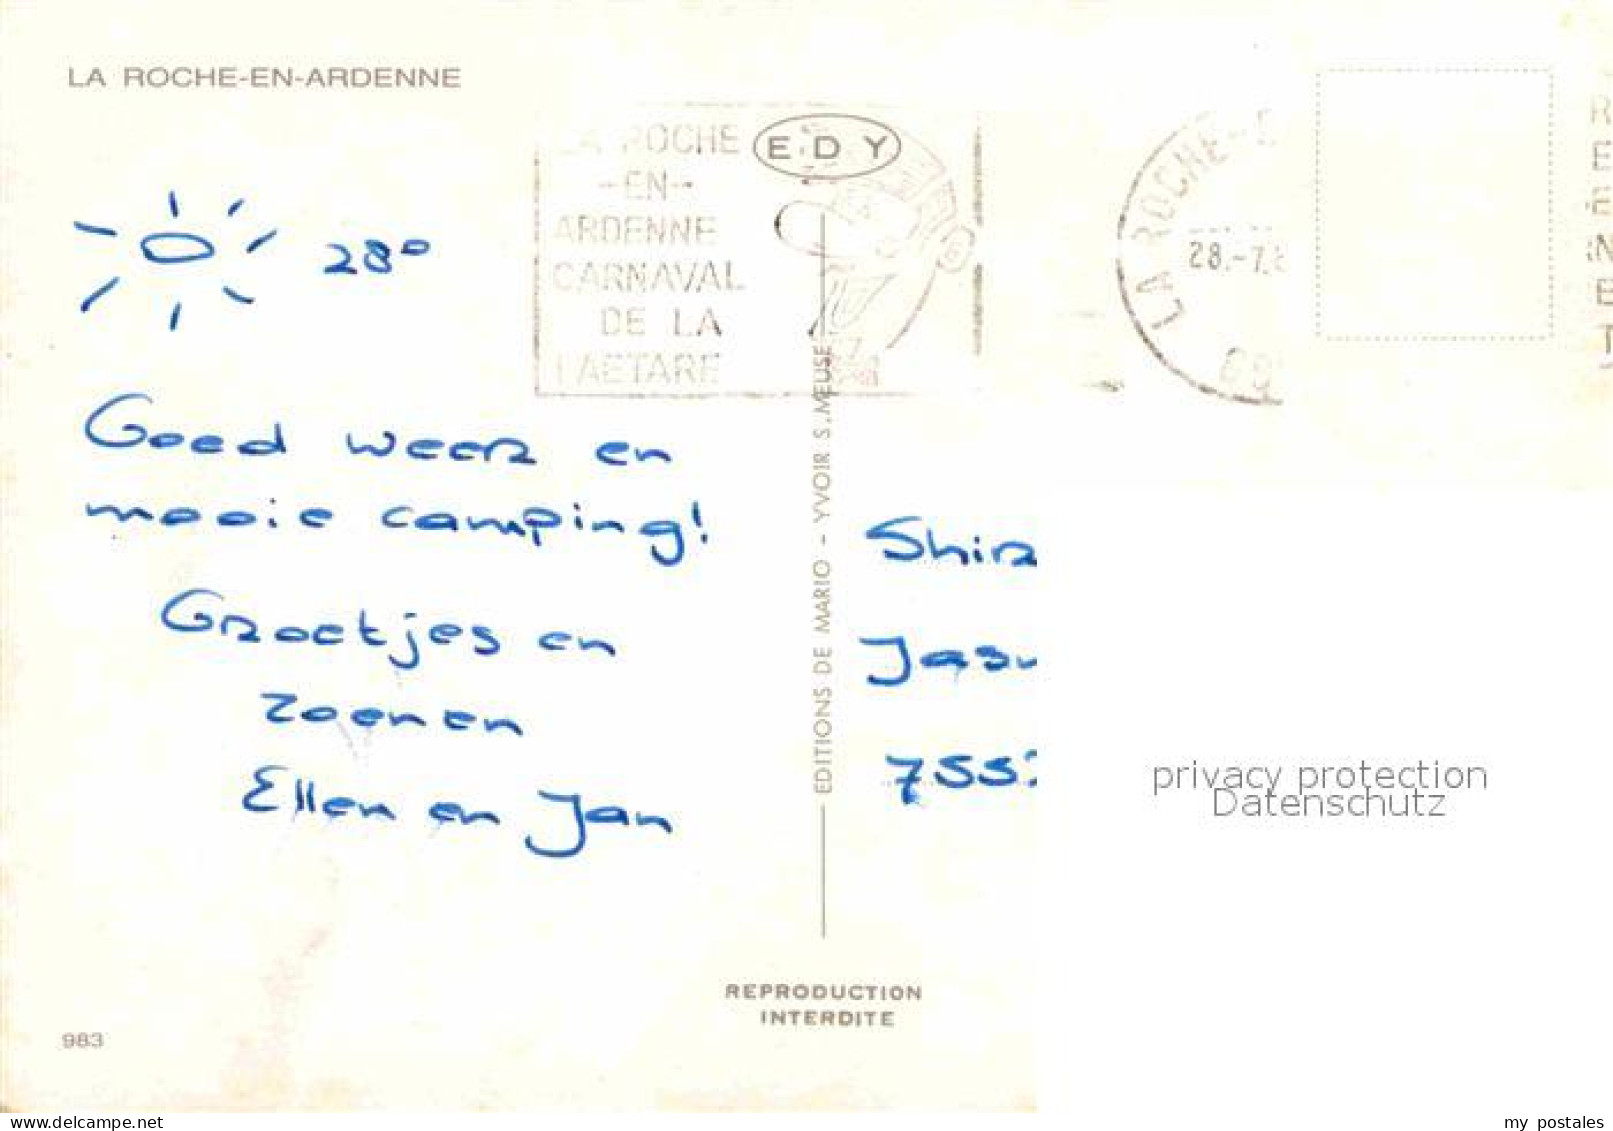 LA ROCHE-EN-ARDENNE
LA ROCHE
-EN-
ARDENNE
CARNAVAL
DE LA
LAETARE
EDY
LA ROCHE-
28.-7.
28°
Goed weer en
mooie camping!
Groetjes en
zoenen
Ellen en Jan
EDITIONS DE MARIO - YVOIR S/MEUSE
Shir
Jas
755
privacy protection
Datenschutz
REPRODUCTION
INTERDITE
983
delcampe.net
my postales